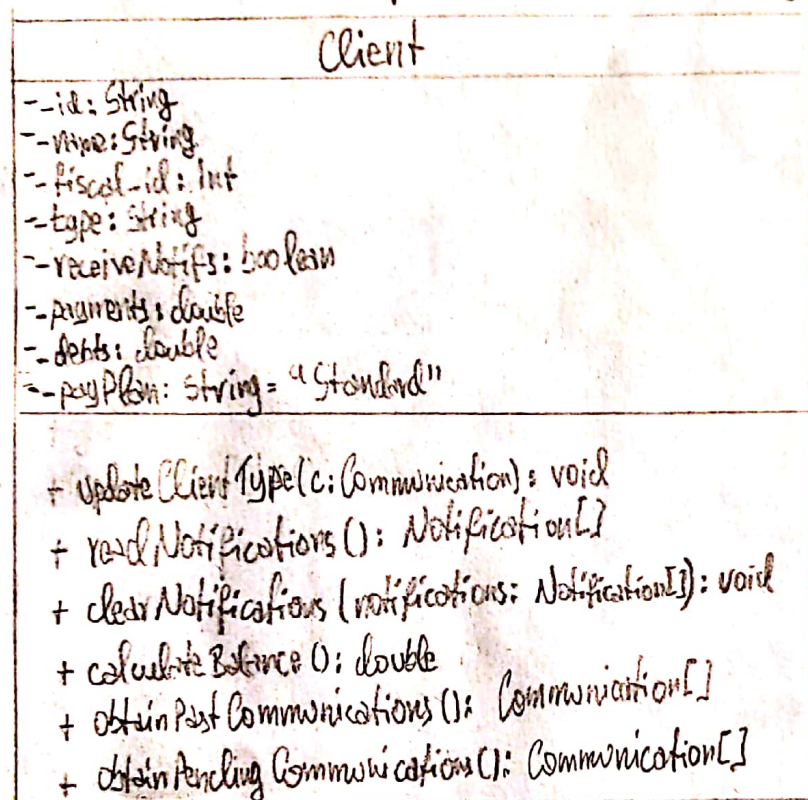 Client
--id: String
--name: String
--fiscal-id: Int
--type: String
--receiveNotifs: boolean
--payments: double
--debts: double
--payPlan: String = "Standard"
+ updateClientType(c: Communication): void
+ readNotifications(): Notification[]
+ clearNotifications (notifications: Notification[]): void
+ calculateBalance(): double
+ obtainPastCommunications(): Communication[]
+ obtainPendingCommunications(): Communication[]